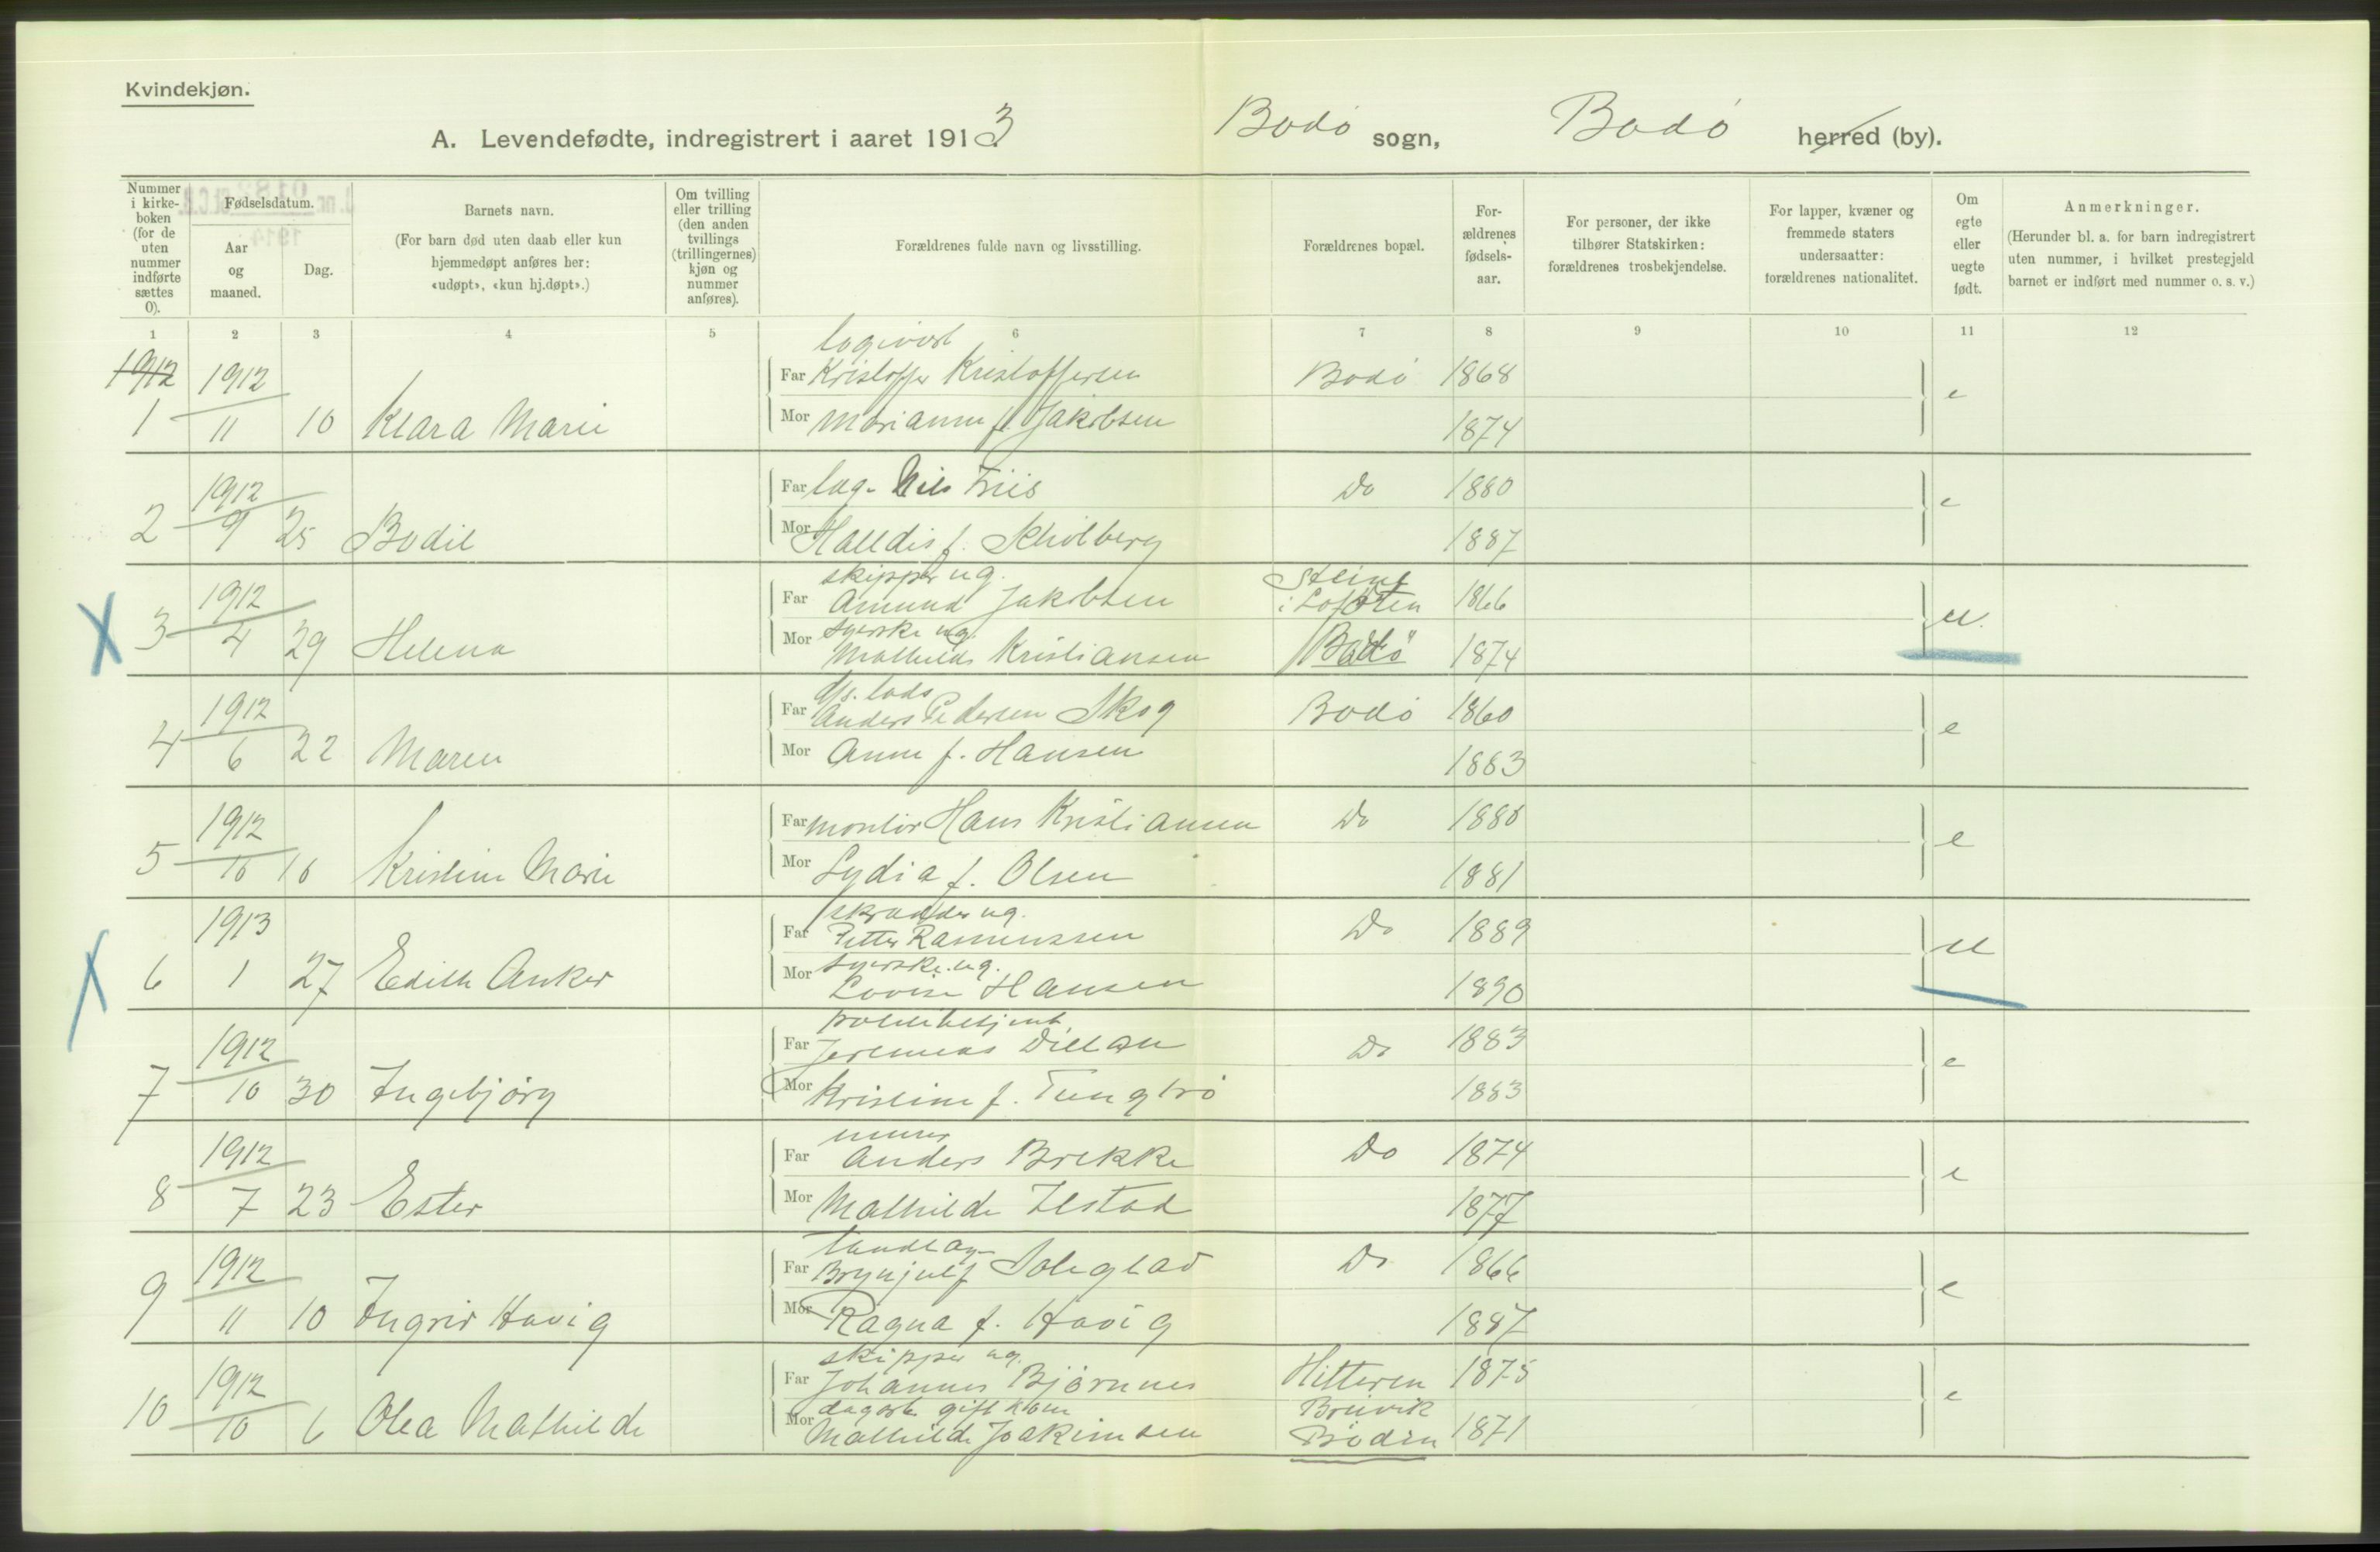 Kvindekjøn.
A. Levendefødte, indregistrert i aaret 1913 Bodø sogn, Bodø herred (by).
Nummer i kirke-boken (for de uten nummer indførte sættes 0).
Fødselsdatum.
Aar og maaned.
Dag.
Barnets navn.
(For barn død uten daab eller kun hjemmedøpt anføres her: «udøpt», «kun hj.døpt».)
Om tvilling eller trilling (den anden tvillings (trillingernes) kjøn og nummer anføres).
Forældrenes fulde navn og livsstilling.
Forældrenes bopæl.
For-ældrenes fødsels-aar.
For personer, der ikke tilhører Statskirken: forældrenes trosbekjendelse.
For lapper, kvæner og fremmede staters undersaatter: forældrenes nationalitet.
Om egte eller uegte født.
Anmerkninger.
(Herunder bl. a. for barn indregistrert uten nummer, i hvilket prestegjeld barnet er indført med nummer o. s. v.)
1 2 3 4 5 6 7 8 9 10 11 12
1912 1912 Far Kristoffer Kristoffersen Bodø 1868 e
1 11 10 Klara Marie Mor Marianne f. Jakobsen 1874
1912 Far sag. Nils Friis Do 1880 e
2 9 25 Bodil Mor Halldis f. Schølberg 1887
skipper ug. Steine
1912 Far Amund Jakobsen i Lofoten 1866 u.
syerske ug.
3 4 29 Helena Mor Mathilde Kristiansen Bodø 1874
lods
1912 Far Anders Pedersen Skog Bodø 1860 e
4 6 22 Maren Mor Anne f. Hansen 1883
1912 Far montør Hans Kristiansen Do 1880 e
5 10 10 Kristine Marie Mor Lydia f. Olsen 1881
skrædder ug.
1913 Far Petter Rasmussen Do 1889 u
syerske ug.
6 1 27 Edith Anker Mor Lovise Hansen 1890
politibetjent
1912 Far Jeremias Dillan Do 1883 e
7 10 30 Ingebjørg Mor Kristine f. 1883
murer
1912 Far Anders Brekke Do 1874 e
8 7 23 Ester Mor Mathilde Ilstad 1877
tandlæge
1912 Far Brynjulf Soleglad Do 1866 e
9 11 10 Ingrid Høvig Mor Ragna f. Høvig 1887
skipper ug.
1912 Far Johannes Bjørnnes Hitteren 1875 e
gift kone
10 10 6 Olea Mathilde Mor Mathilde Joakimsen Bodin 1871